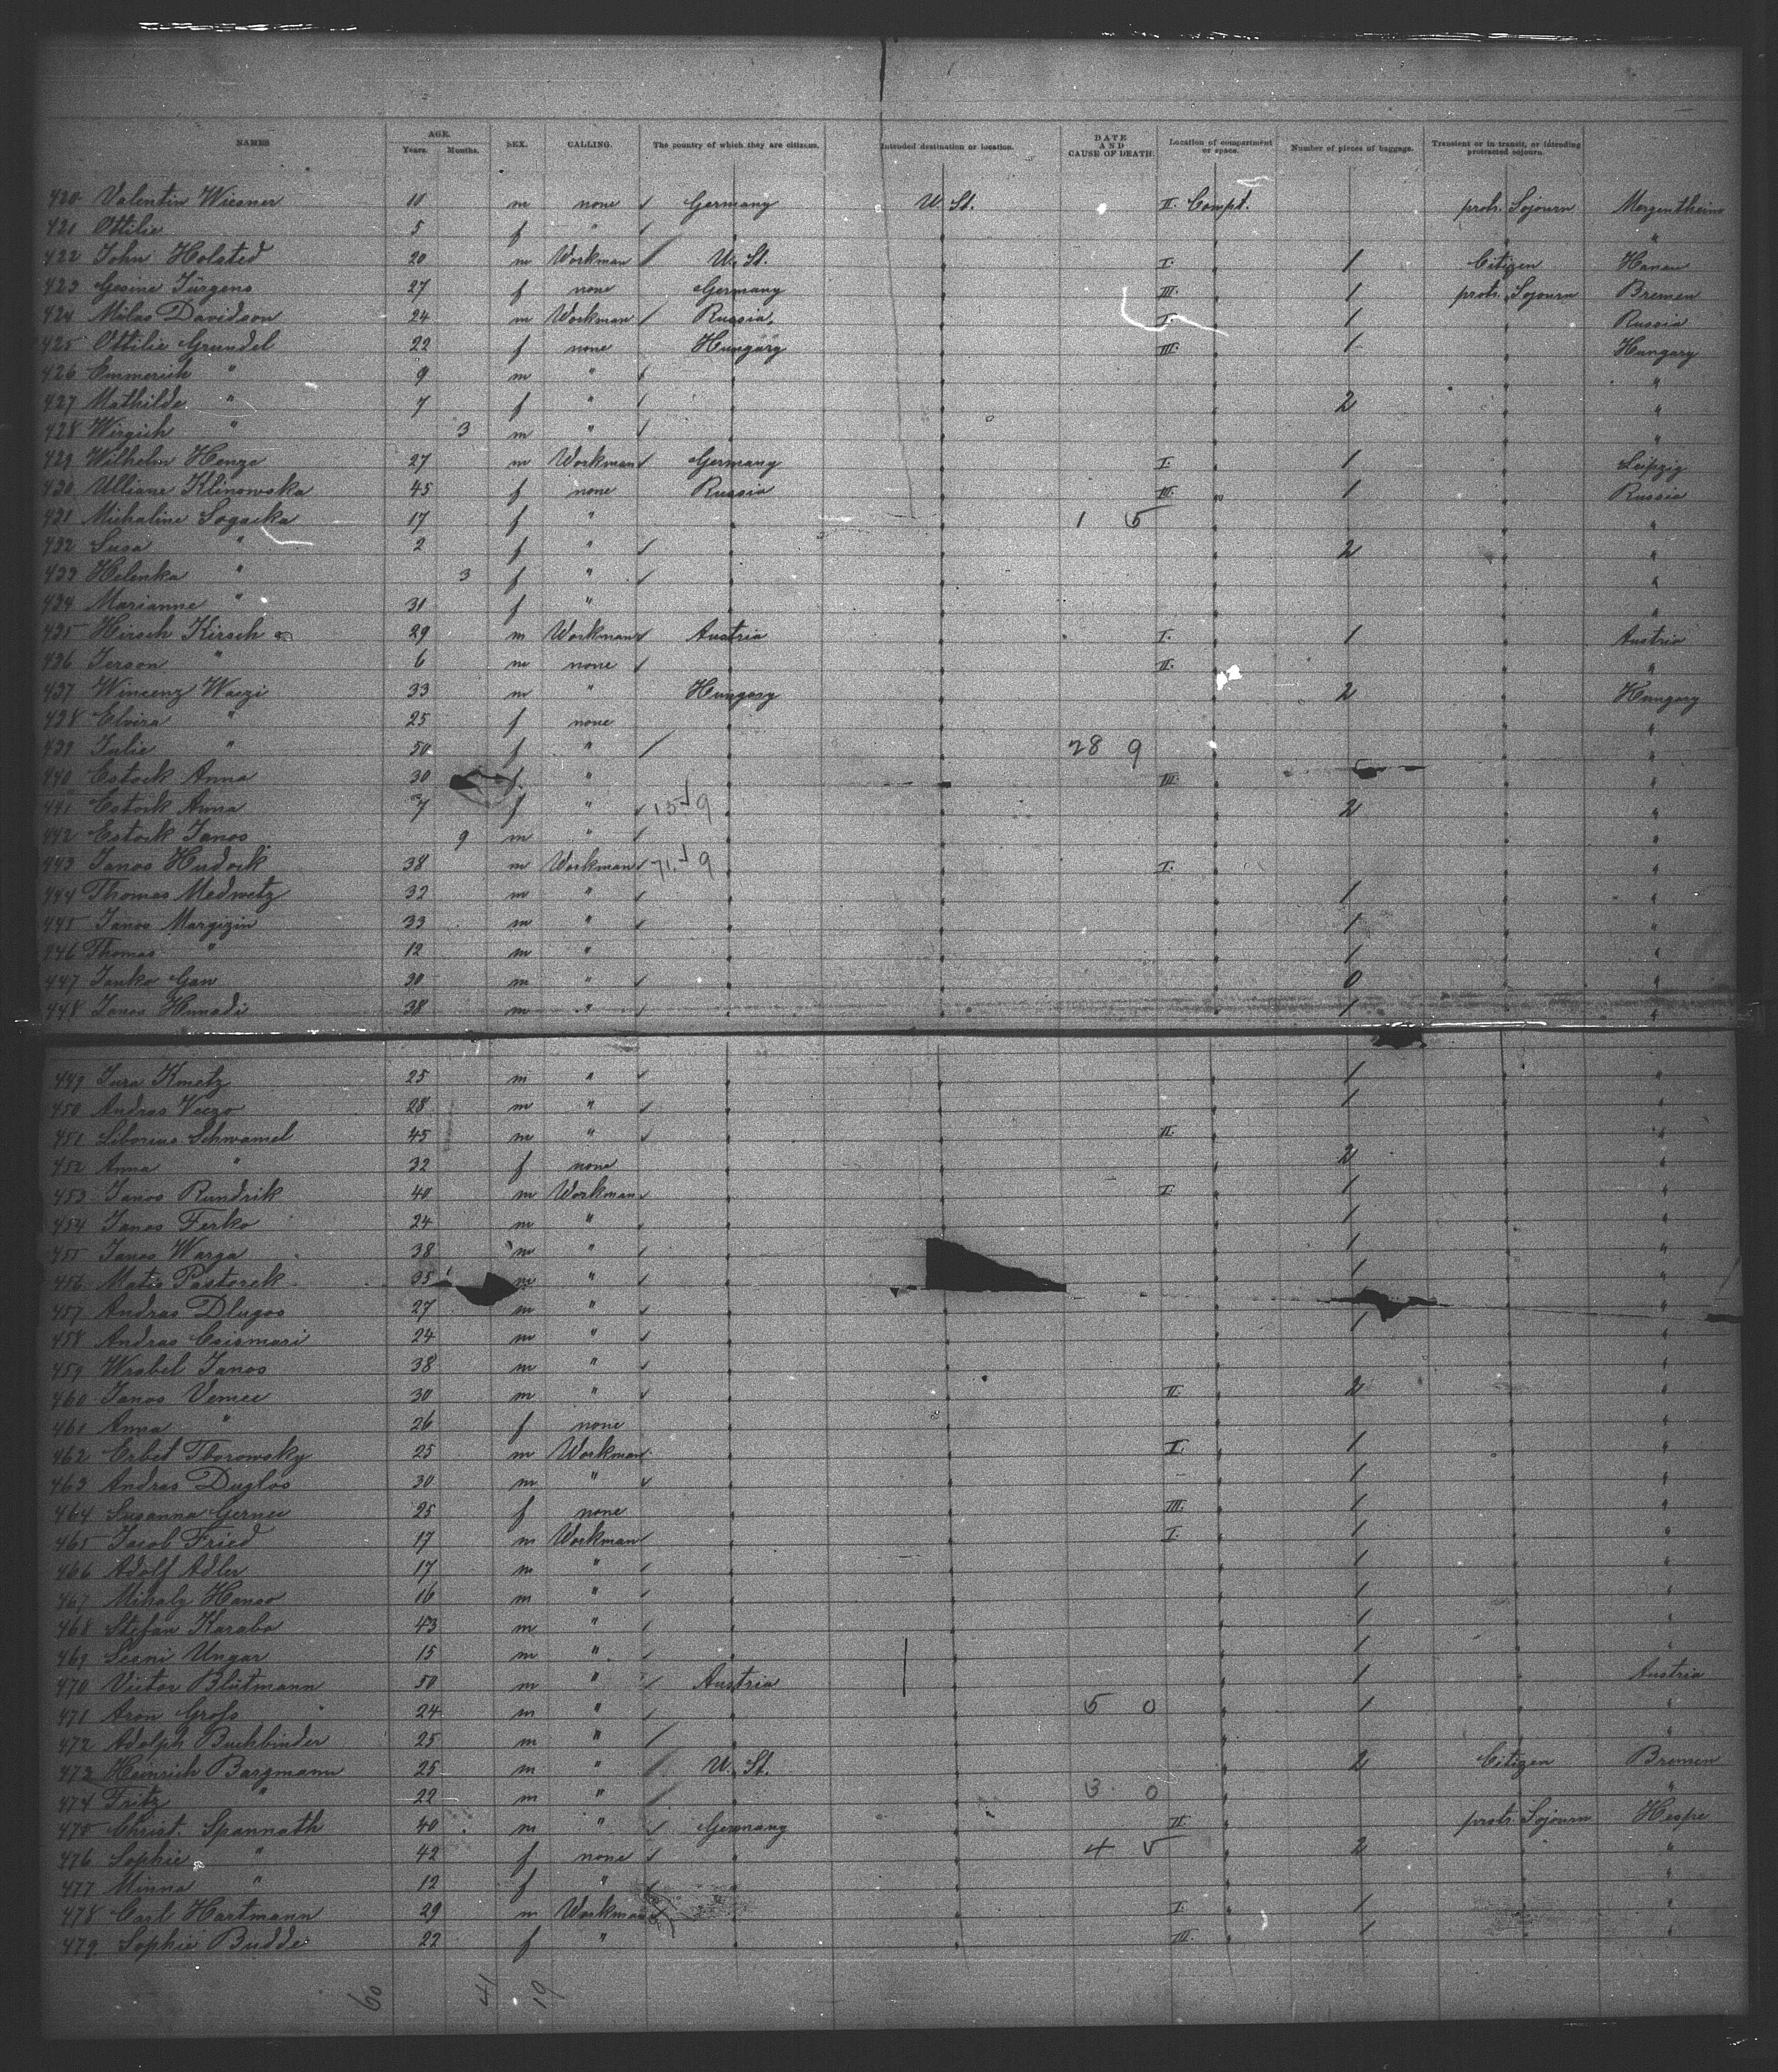 NAMES AGE. Years. Months. SEX. CALLING. The country of which they are citizens. Intended destination or location. DATE AND CAUSE OF DEATH. Location of compartment or space. Number of pieces of baggage. Transient or in transit, or intending protracted sojourn.
420 Valentin Wiesner 10 m none Germany U. St. II. Compt. protr. Sojourn Mergentheim
421 Ottilie 5 f " "
422 John Holsted 20 m Workman U. St. I. 1 Citizen Hanau
423 Gesine Jürgens 27 f none Germany III. 1 protr. Sojourn Bremen
424 Milas Davidson 24 m Workman Russia. I. 1 Russia
425 Ottilie Grundel 22 f none Hungary III. 1 Hungary
426 Emmerich " 9 m " "
427 Mathilde " 7 f " 2 "
428 " 3 m " "
429 Wilhelm Henze 27 m Workman Germany I. 1 Leipzig
430 Ulliane Klinowska 45 f none Russia III. 1 Russia
431 Michaline Sogacka 17 f " 1 5 "
432 Susa " 2 f " 2 "
433 Helenka " 3 f " "
434 Marianne " 31 f " "
435 Hirsch Kirsch 29 m Workman Austria I. 1 Austria
436 Jerson " 6 m none II. "
437 Wincenz Waczi 33 m " Hungary 2 Hungary
438 Elvira " 25 f none "
439 Julie " 50 f " 28 9 "
440 Estock Anna 30 f. " III. "
441 Estock Anna 7 f " 15 9 2 "
442 Estock Janos 9 m " "
443 Janos Hudock 38 m Workman 71 9 I. "
444 Thomas Medwetz 32 m " 1 "
445 Janos Margizin 33 m " 1 "
446 Thomas " 12 m " 1 "
447 Janko Gan 30 m " 0 "
448 Janos Hunadi 38 m " 1 "
449 Jura Kmetz 25 m " 1 "
450 Andras Veczo 28 m " 1 "
451 Liborius Schwamel 45 m " II. "
452 Anna " 32 f none 2 "
453 Janos Rundrik 40 m Workman I. 1 "
454 Janos Ferko 24 m " 1 "
455 Janos Warga 38 m " 1 "
456 Matis Pastorek 35 m " 1 "
457 Andras Dlugos 27 m " 1 "
458 Andras Csismari 24 m " "
459 Wrabel Janos 38 m " "
460 Janos Vemec 30 m " II. 2 "
461 Anna " 26 f none "
462 Erbet Tborowsky 25 m Workman I. 1 "
463 Andras Duglos 30 m " 1 "
464 Susanna Gernec 25 f none III. 1 "
465 Jacob Fried 17 m Workman I. 1 "
466 Adolf Adler 17 m " 1 "
467 Mihaly Hanso 16 m " 1 "
468 Stefan Karabo 43 m " 1 "
469 Ungar 15 m " 1 "
470 Victor Blutmann 50 m " Austria 1 Austria
471 Aron Groß 24 m " 5 0 1 "
472 Adolph Buchbinder 25 m " "
473 Heinrich Bargmann 25 m " U. St. 2 Citizen Bremen
474 Fritz " 22 m " 3 0 "
475 Christ. Spannath 40 m " Germany II. protr. Sojourn Hespe
476 Sophie " 42 f none 4 5 2 "
477 Minna " 12 f " "
478 Carl Hartmann 29 m Workman I. 1 "
479 Sophie Budde 22 f " III. 1 "
60 41 19